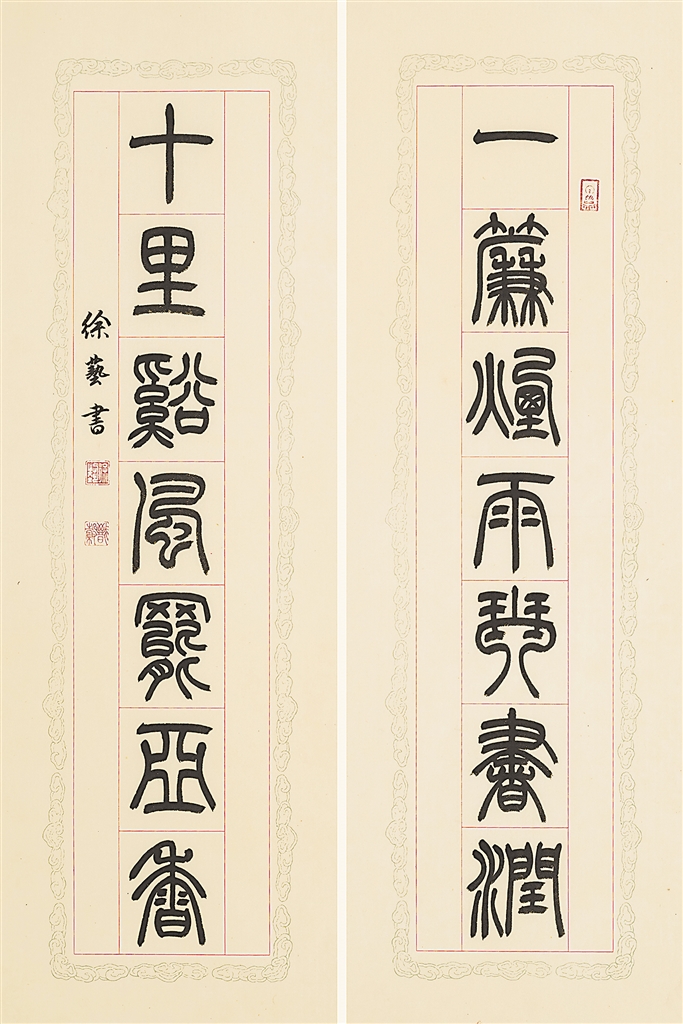 一簾煙雨琴書潤
十里谿風罷亞香
徐藝書